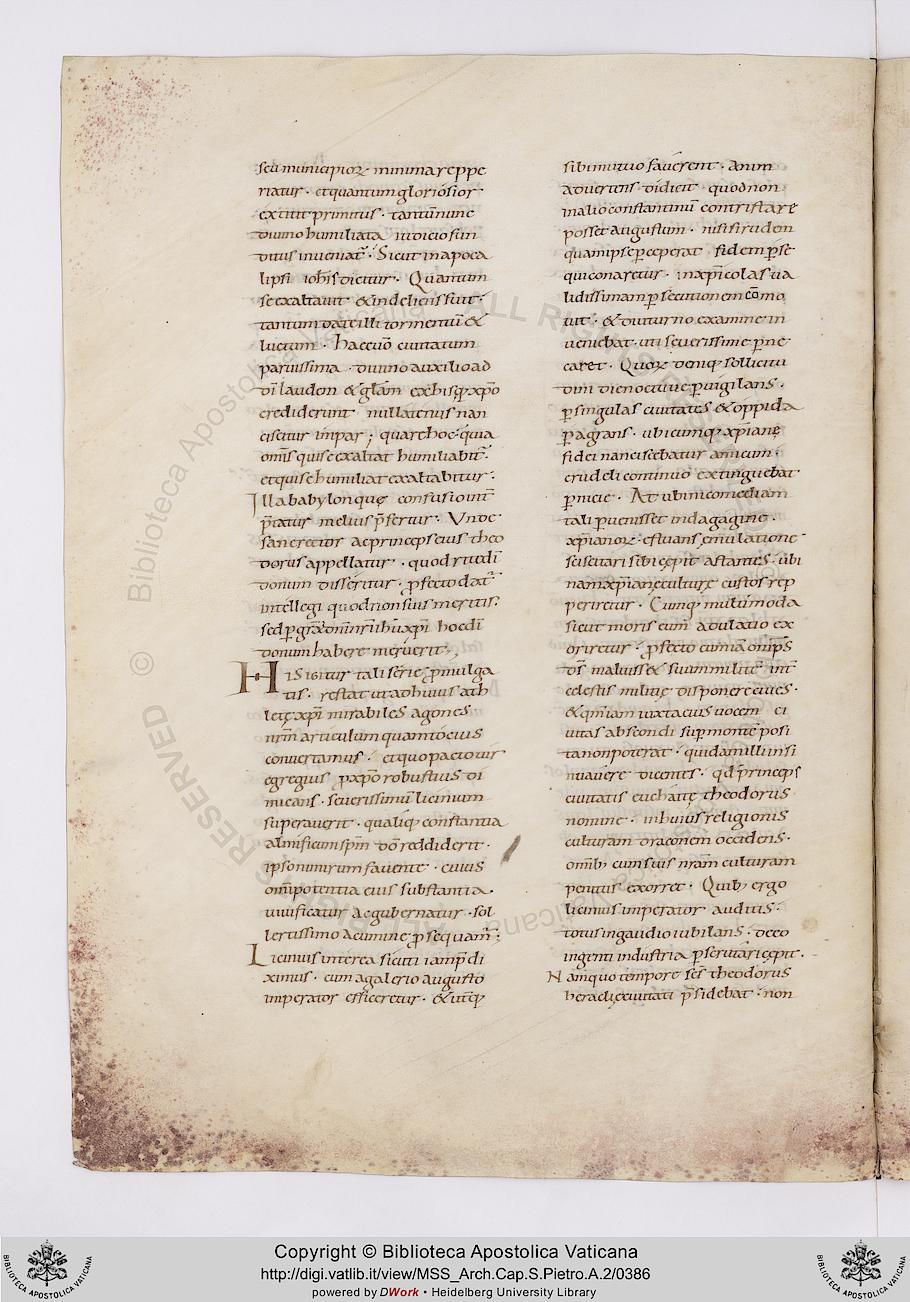 seu municipioꝝ minima reppe
riatur · et quantum gloriosior
extitit primitus · tantū nunc
diuino humiliata iudicio sub
ditus inueniat᷑ · Sicut in apoca
lipsi ioh̄is dicitur · Quantum
se exaltauit & in deliciis fuit ·
tantum date illi tormentū &
luctum · Haec uō ciuitatum
paruissima · diuino auxilio ad
dī laudem & glām ex his q; xp̄o
crediderunt nullatenus nan
cisctur impar ; quare hoc · quia
omīs qui se exaltat humiliabit᷑ ·
et qui se humiliat exaltabitur ·
Illa babylon quę confusio int̄
p̄tatur melius p̄fertur · Unde
sane rector ac princeps eius theo
dorus appellatur · quod rite dī
donum disseritur · ꝓfecto dat᷑
intellegi quod non suis meritis ·
sed ꝑ grām dn̄i nr̄i ihū xp̄i hoc dī
donum habere meruerit ,
His igitur tali serie ꝓmulga
tis · restat ut ad huius ath
letę xp̄i mirabiles agones
nr̄m articulum quantocius
conuertamus · et quo pacto uir
egregius ꝓ xp̄o robustius di
micans · seuerissimū licinium
superauerit · qualiq; constantia
almificum sp̄m dō reddiderit ·
ipso numirum fauente · cuius
omīpotentia eius substantia ·
uiuificatur ac gubernatur · sol
lertissimo acumine ꝓsequam᷑ ;
Licinius interea sicuti iam p̄di
ximus · cum a galerio augusto
imperator efficeretur · & utiq;
sibi mutuo fauerent · Anim
aduertens didicit quod non
in alio constantinū contristare
posset augustum · nisi si eudem
quam ipse ꝑceperat fidem ꝑse
qui conaretur · in xp̄icolas ua
lidissimam ꝑsecutionem cōmo
uit · & diuturno examine in
ueniebat · uti seuerissime ꝑne
caret · Quoꝝ deniq; sollicitu
dini die noctuq; ꝑuigilans ·
ꝑ singulas ciuitates & oppida
ꝑagrans · ubicumq; xp̄ianę
fidei nancisebatur amicum ·
crudeli continuo extinguebat
ꝑnicie · At ubi nicomediam
tali ꝑuenisset indagagine ·
xp̄ianoꝝ · efluans emulatione
sciscitari sibi cępit astantes · ubi
nam xp̄ianę culturę custos rep
periretur · Cumq; multimoda
sicut moris cum adulatio ex
oriretur · ꝓfecto cum iam omīps
dś maluisse suum militē int̄
celestis militię disponere ciues ·
& qm̄iam iuxta eius uocem ci
uitas abscondi supͬ monte posi
ta non poterat · quidam illi insi
nuauere dicentes · qd̄ princeps
ciuitatis euchaitę theodorus
nomine · in huius religionis
culturam draconem occidens ·
omīb; cum suis nr̄am culturam
penitus exorret · Quib; ergo
licinius imperator auditis ·
totus in gaudio iubilans · deeo
ingenti industria ꝑscrutari cępit ·
Namquo tempore scs̄ theodorus
heraclię ciuitati p̄sidebat · non
Copyright © Biblioteca Apostolica Vaticana
http://digi.vatlib.it/view/MSS_Arch.Cap.S.Pietro.A.2/0386
powered by DWork • Heidelberg University Library